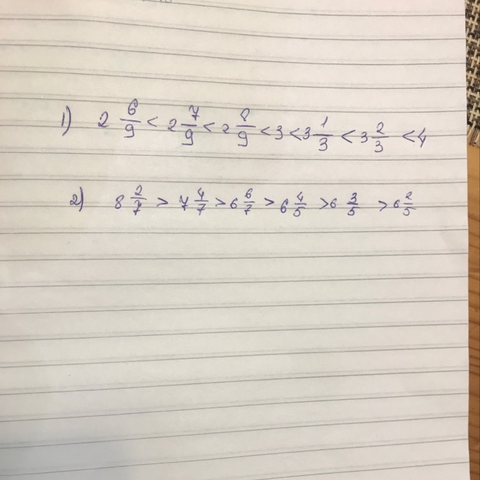 1) 2 6/9 < 2 7/9 < 2 8/9 < 3 < 3 1/3 < 3 2/3 < 4
2) 8 2/7 > 7 4/7 > 6 6/7 > 6 4/5 > 6 3/5 > 6 2/5